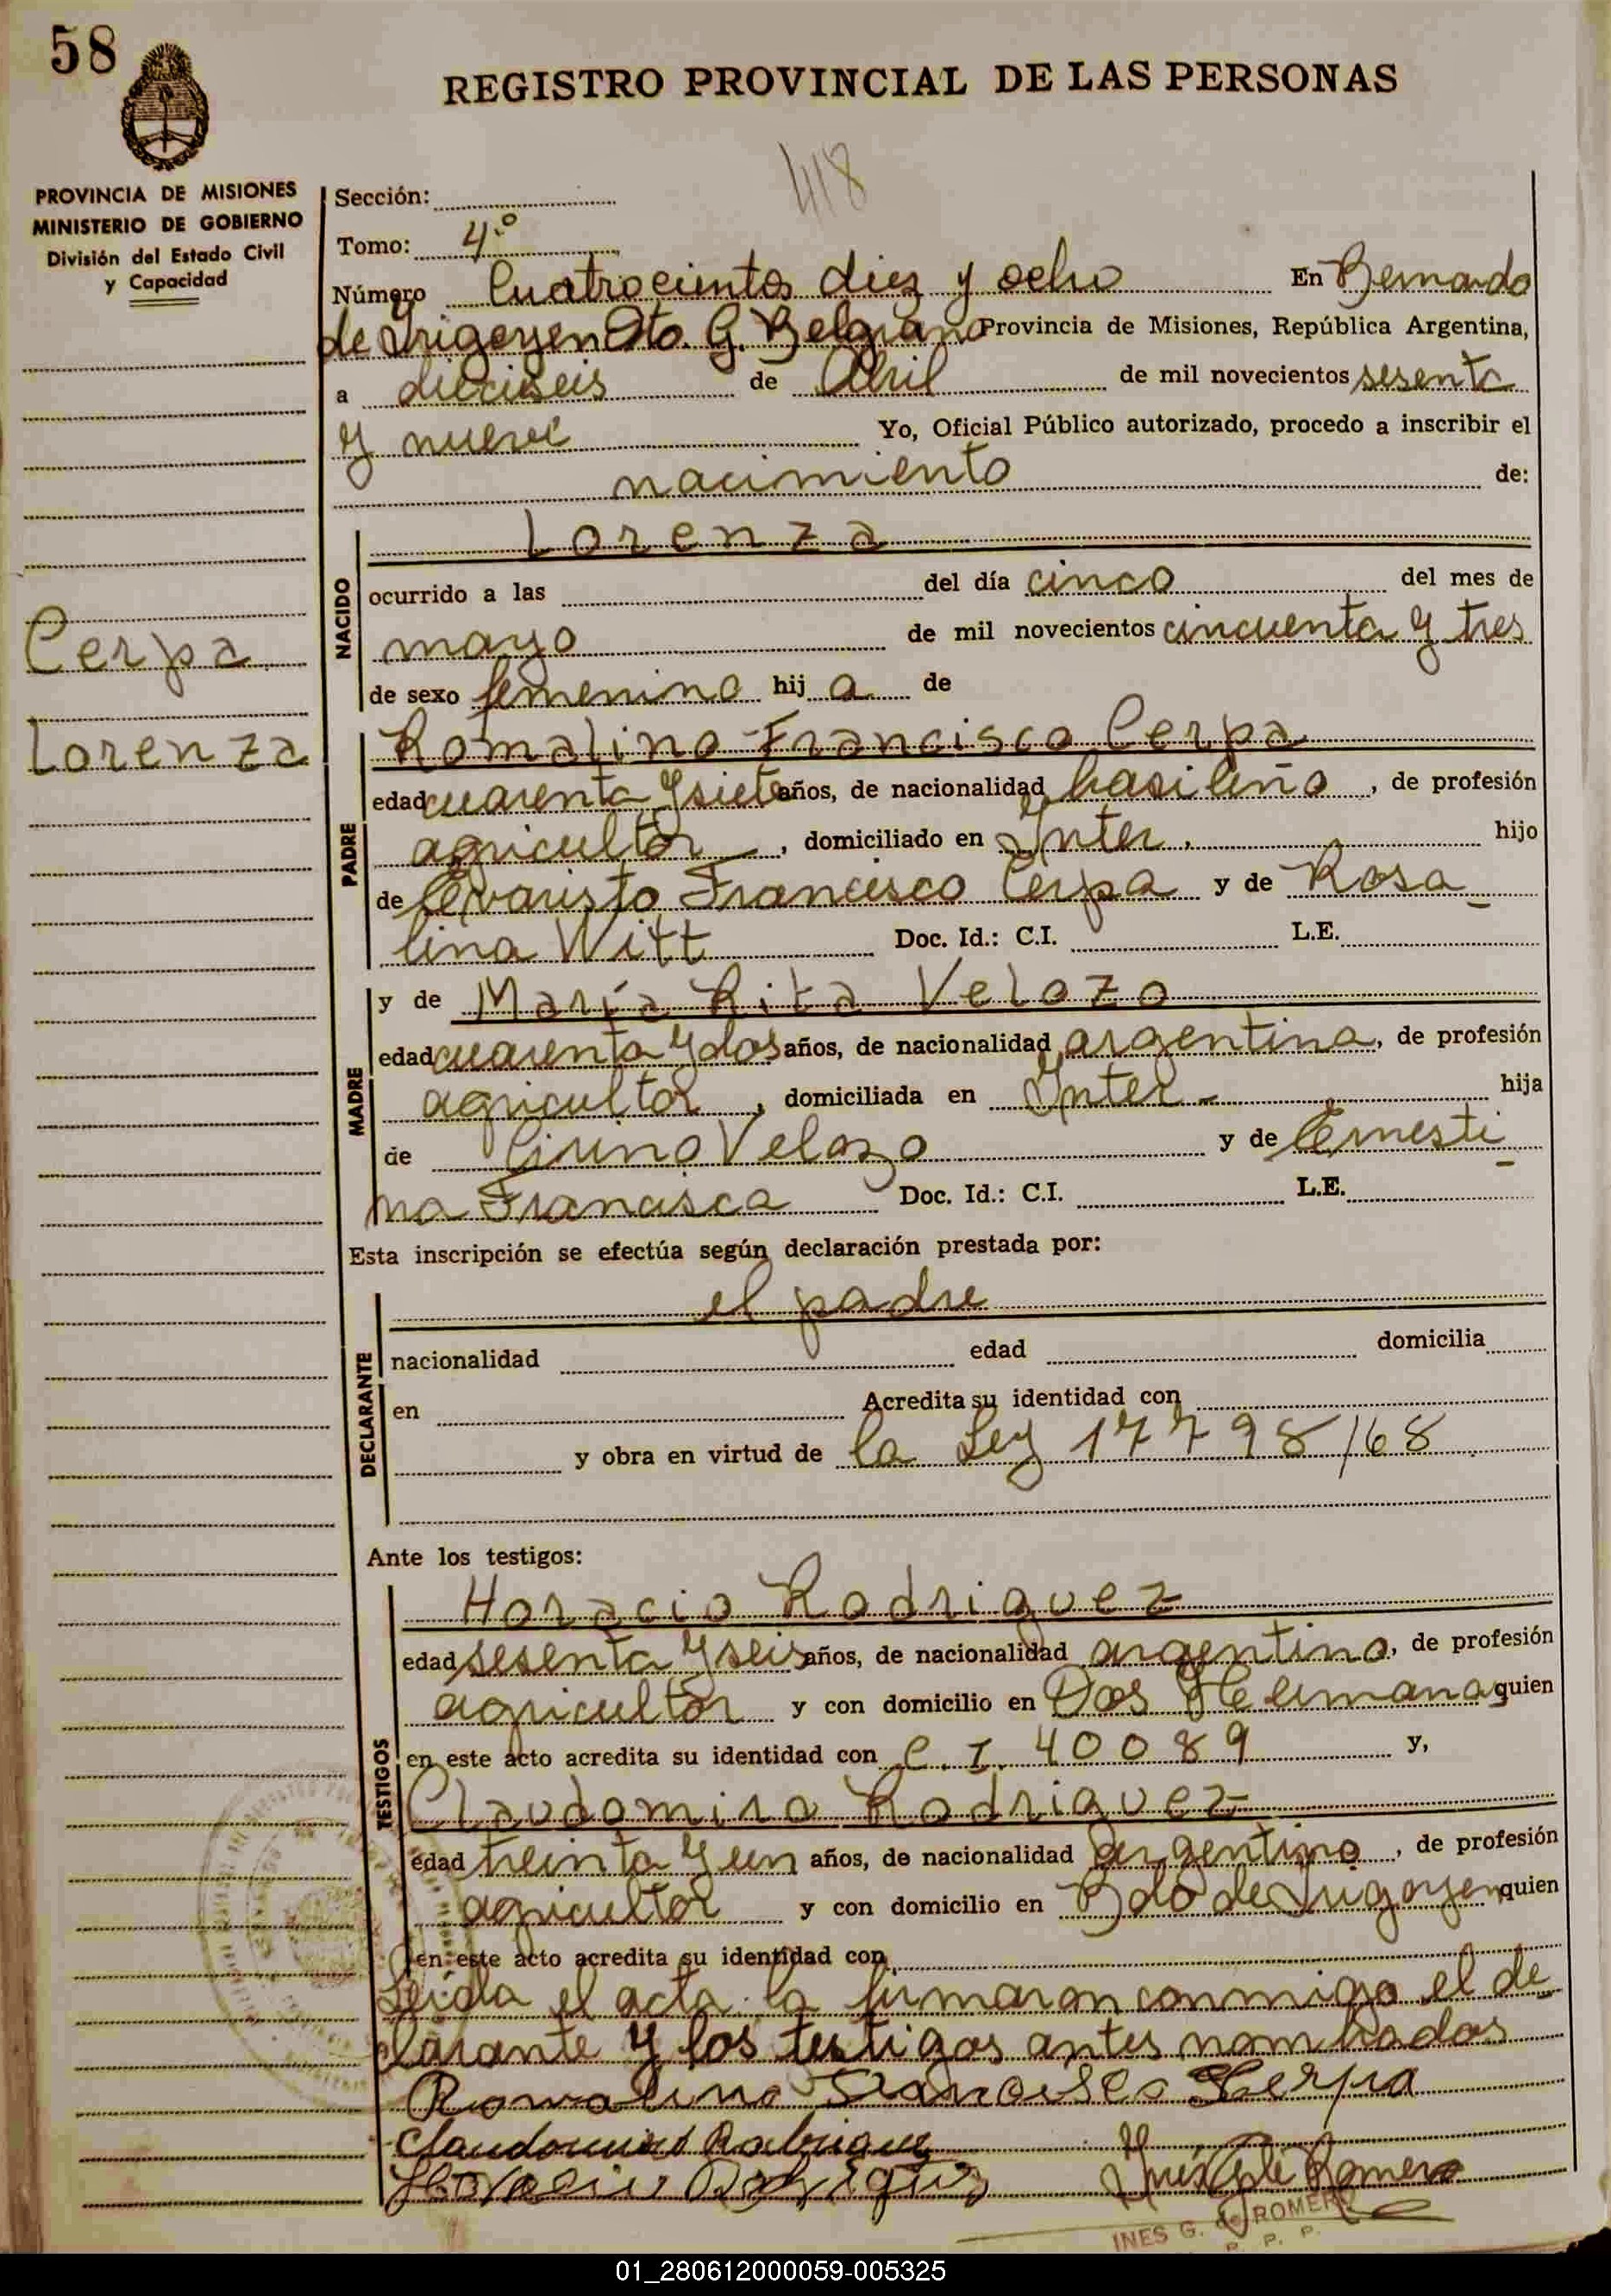 58
REGISTRO PROVINCIAL DE LAS PERSONAS
418
PROVINCIA DE MISIONES
MINISTERIO DE GOBIERNO
División del Estado Civil
y Capacidad
Sección:
Tomo: 4º
Número Cuatrocientos diez y ocho En Bernardo
de Irigoyen Dto. G. Belgrano Provincia de Misiones, República Argentina,
a dieciseis de Abril de mil novecientos sesenta
y nueve Yo, Oficial Público autorizado, procedo a inscribir el
nacimiento de:
NACIDO
Lorenza
ocurrido a las del día cinco del mes de
mayo de mil novecientos cincuenta y tres
de sexo femenino hij a de
Cerpa
Lorenza
PADRE
Romalino Francisco Cerpa
edad cuarenta y siete años, de nacionalidad basileño, de profesión
agricultor, domiciliado en Inter, hijo
de Evaristo Francisco Cerpa y de Rosa
lina Witt Doc. Id.: C.I. L.E.
MADRE
y de María Rita Velozo
edad cuarenta y dos años, de nacionalidad argentina, de profesión
agricultor, domiciliada en Inter - hija
de Cirino Velozo y de Ernesti
na Francisca Doc. Id.: C.I. L.E.
Esta inscripción se efectúa según declaración prestada por:
DECLARANTE
el padre
nacionalidad edad domicilia
en Acredita su identidad con
y obra en virtud de la Ley 17798/68
Ante los testigos:
TESTIGOS
Horacio Rodriguez
edad sesenta y seis años, de nacionalidad argentino, de profesión
agricultor y con domicilio en Dos Hermana quien
en este acto acredita su identidad con C.I. 40089 y,
Claudomiro Rodriguez
edad treinta y un años, de nacionalidad argentino, de profesión
agricultor y con domicilio en Bdo de Irigoyen quien
en este acto acredita su identidad con
Leida el acta la firmaron conmigo el de
clarante y los testigos antes nombrados
Romalino Francisco Serpa
Claudomiro Rodriguez
Horacio Rodriguez
Inés G de Romero
INES G. de ROMERO
01_280612000059-005325